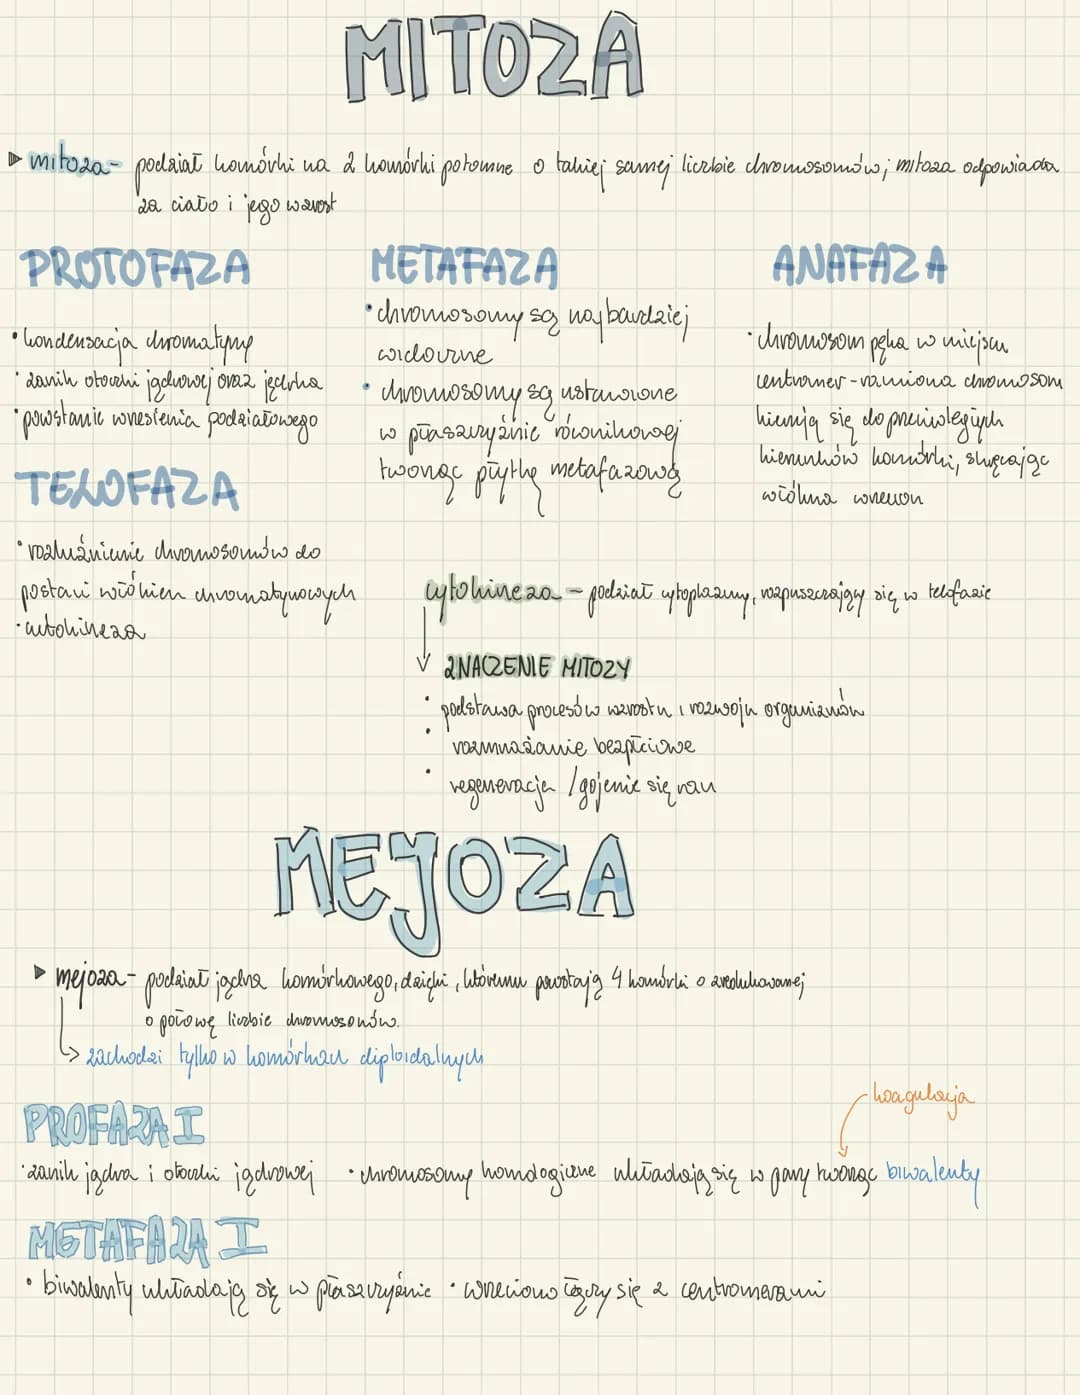 MITOZA
mitoza - podział komórki na 2 komórki potomne o takiej samej liczbie chromosomów; mitoza odpowiada
za ciało i jego wzrost
PROTOFAZA
• kondensacja chromatyny
• zanik otoczki jądrowej oraz jąderka
• powstanie wrzesienia podziałowego
METAFAZA
• chromosomy są najbardziej
widoczne
• chromosomy są ustawione
w płaszczyźnie równikowej
tworząc płytkę metafazową
ANAFAZA
• chromosom pęka w miejscu
centromer - ramiona chromosom
kierują się do przeciwległych
kierunków komórki, skręcając
włókna wrzecion
TELOFAZA
• rozluźnienie chromosomów do
postaci włókien chromatynowych
• cytokineza
cytokineza - podział cytoplazmy, rozpuszczający się w telofazie
ZNACZENIE MITOZY
• podstawa procesów wzrostu i rozwoju organizmów
• rozmnażanie bezpłciowe
• regeneracja / gojenie się ran
MEJOZA
mejoza - podział jądra komórkowego, dzięki, któremu powstają 4 komórki o zredukowanej
o połowę liczbie chromosomów.
zachodzi tylko w komórkach diploidalnych
koagulacja
PROFAZA I
• zanik jądra i otoczki jądrowej • chromosomy homologiczne układają się w pary tworząc biwalenty
METAFAZA I
• biwalenty układają się w płaszczyźnie • wrzeciono łączy się z centromerami